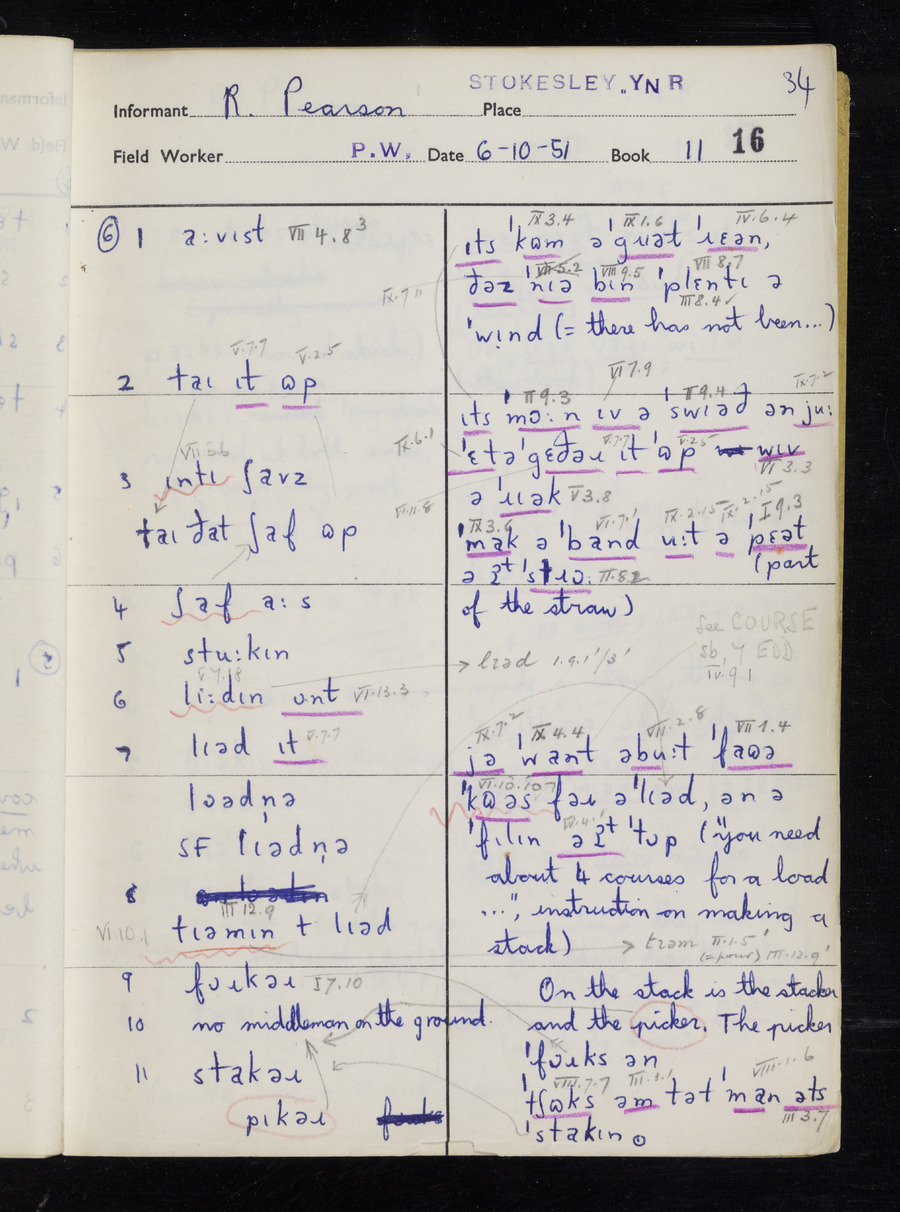 STOKESLEY, YN R
34
Informant R. Pearson Place
Field Worker P.W. Date 6-10-51 Book 11 16
⑥ 1 a:vɪst VII 4.8³
2 taɪ ɪt ɷp
V.7.7 V.2.5
VII.5.6
3 ɪntɪ ʃavz
taɪ ðat ʃaf ɷp
4 ʃaf a:s
5 stu:kɪn
V.7.18
6 li:dɪn ʊnt VI.13.3
7 lɪəd ɪt V.7.7
lʊədn̩ə
SF lɪədn̩ə
8
III 12.9
VI.10.1 tɪəmɪn t lɪəd
9 fʊɹkəɹ I 7.10
10 no middleman on the ground.
11 stakəɹ
pɪkəɹ
IX 3.4 IX 1.6 IV.6.4
ɪts 'kɷm ə 'gʊət 'ɹɛən,
VII 5.2 VIII 9.5 VII 8.7
ðəz 'nɪə bɪn 'plɛntɪ ə
IX.7
III 8.4 ✓
'wɪnd (= there has not been...)
VI 7.9
II 9.3 II 9.4 IX.7.2
ɪts mɔ:n ɪv ə 'swɪəð ən ju:
IX.6.1 V.7.7 V.2.5
'ɛtə 'gɛðəɹ ɪt 'ɷp wɪv
VI 3.3
ə 'ɹɪək V 3.8
VI.11.8
IX 3.6 VI.7.1 IX.2.15 IX.2.15 I 9.3
'mak ə 'band u:t ə 'pɛət
ə ʔt 'stɹɔ: II.8.2 (part
of the straw)
See COURSE
sb. 4 EDD
IV.9.1
→ lɪəd 1.9.1'/3'
IX.7.2 IX 4.4 VII.2.8 VII 1.4
jə 'want əbu:t 'fawə
VI.10.10
'kɷəs fəɹ ə 'lɪəd, ən ə
'fɪlɪn ə ʔt 'tʊp ("you need
about 4 courses for a load
...", instruction on making a
stack) → tɪəm II.1.5'
(= pour) III.12.9'
On the stack is the stacker
and the picker. The picker
'fʊɹks ən
VIII.7.7 III.3.1 VIII.1.6
'tʃɷks əm tət 'man əts
III 3.7
'stakɪn.